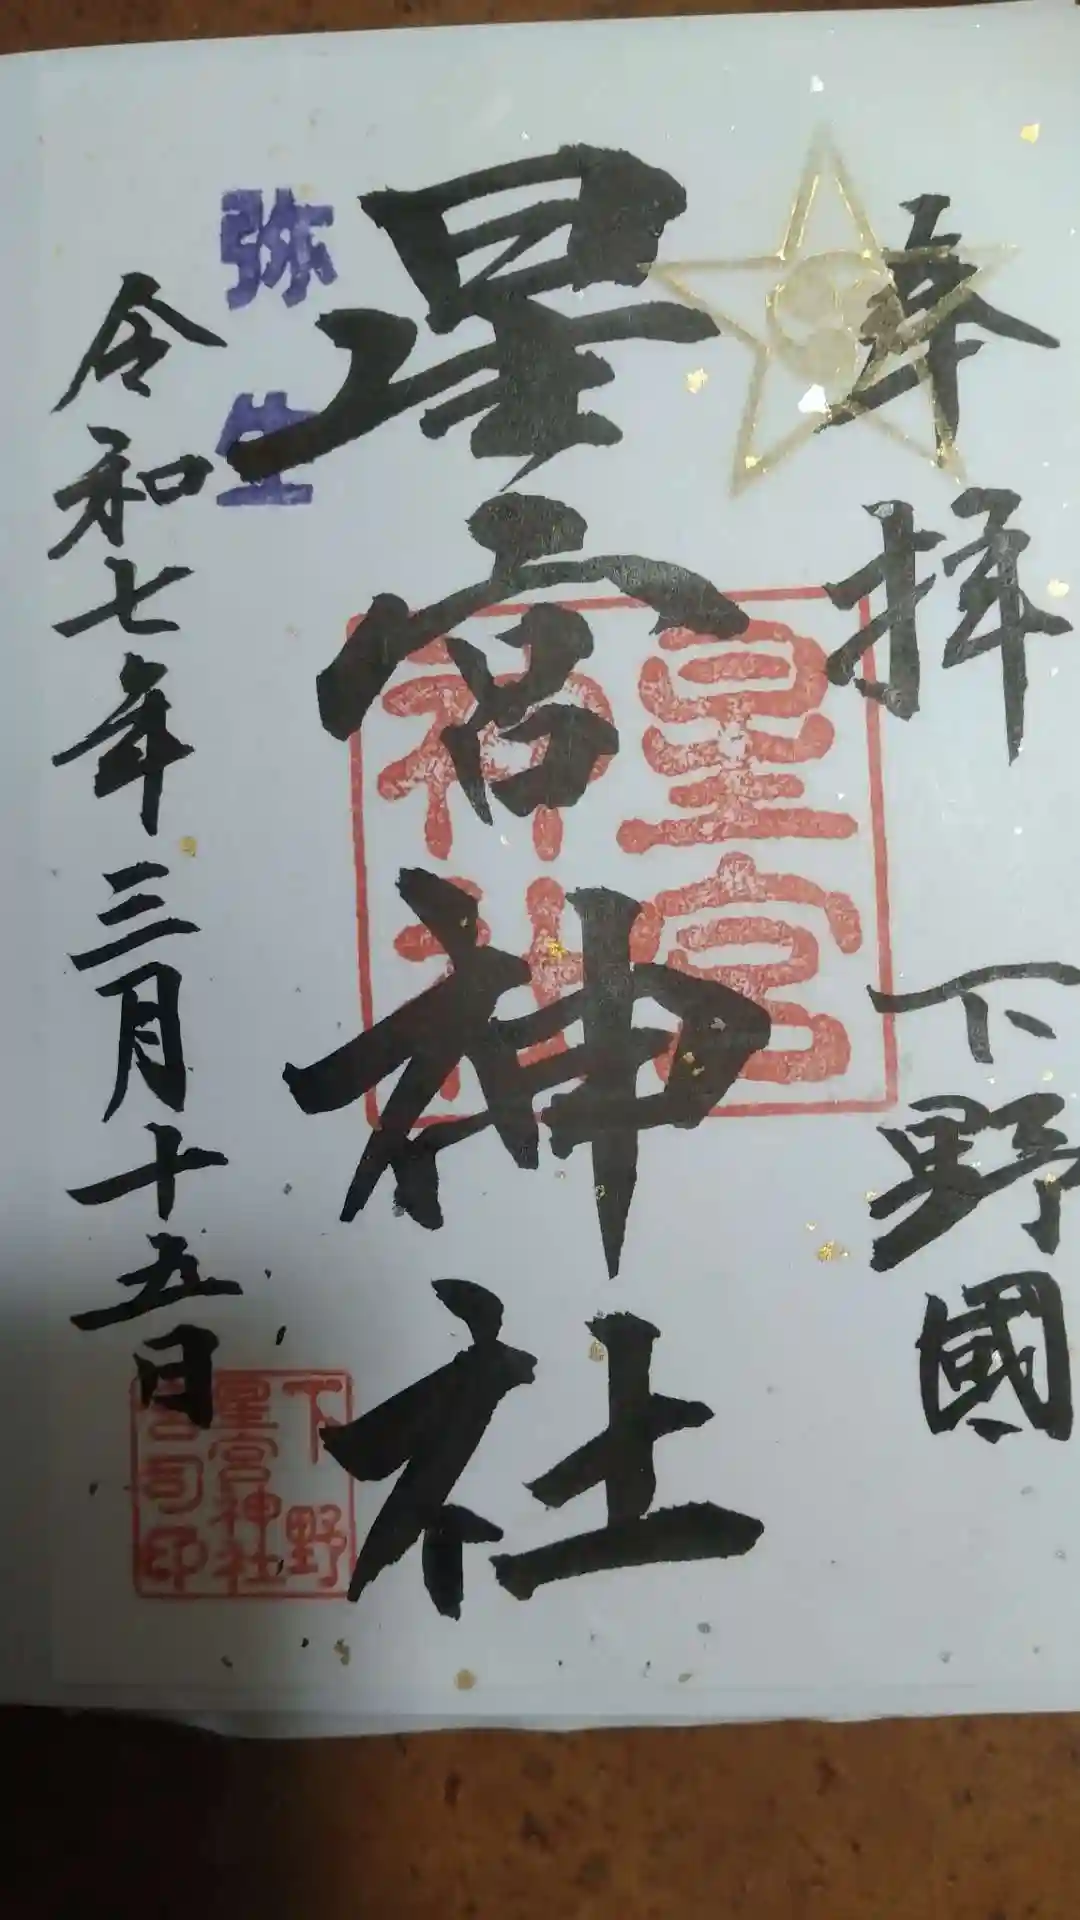 奉拝
下野國
星宮神社
星宮
神社
弥生
令和七年三月十五日
下野
星宮神社
宮司印